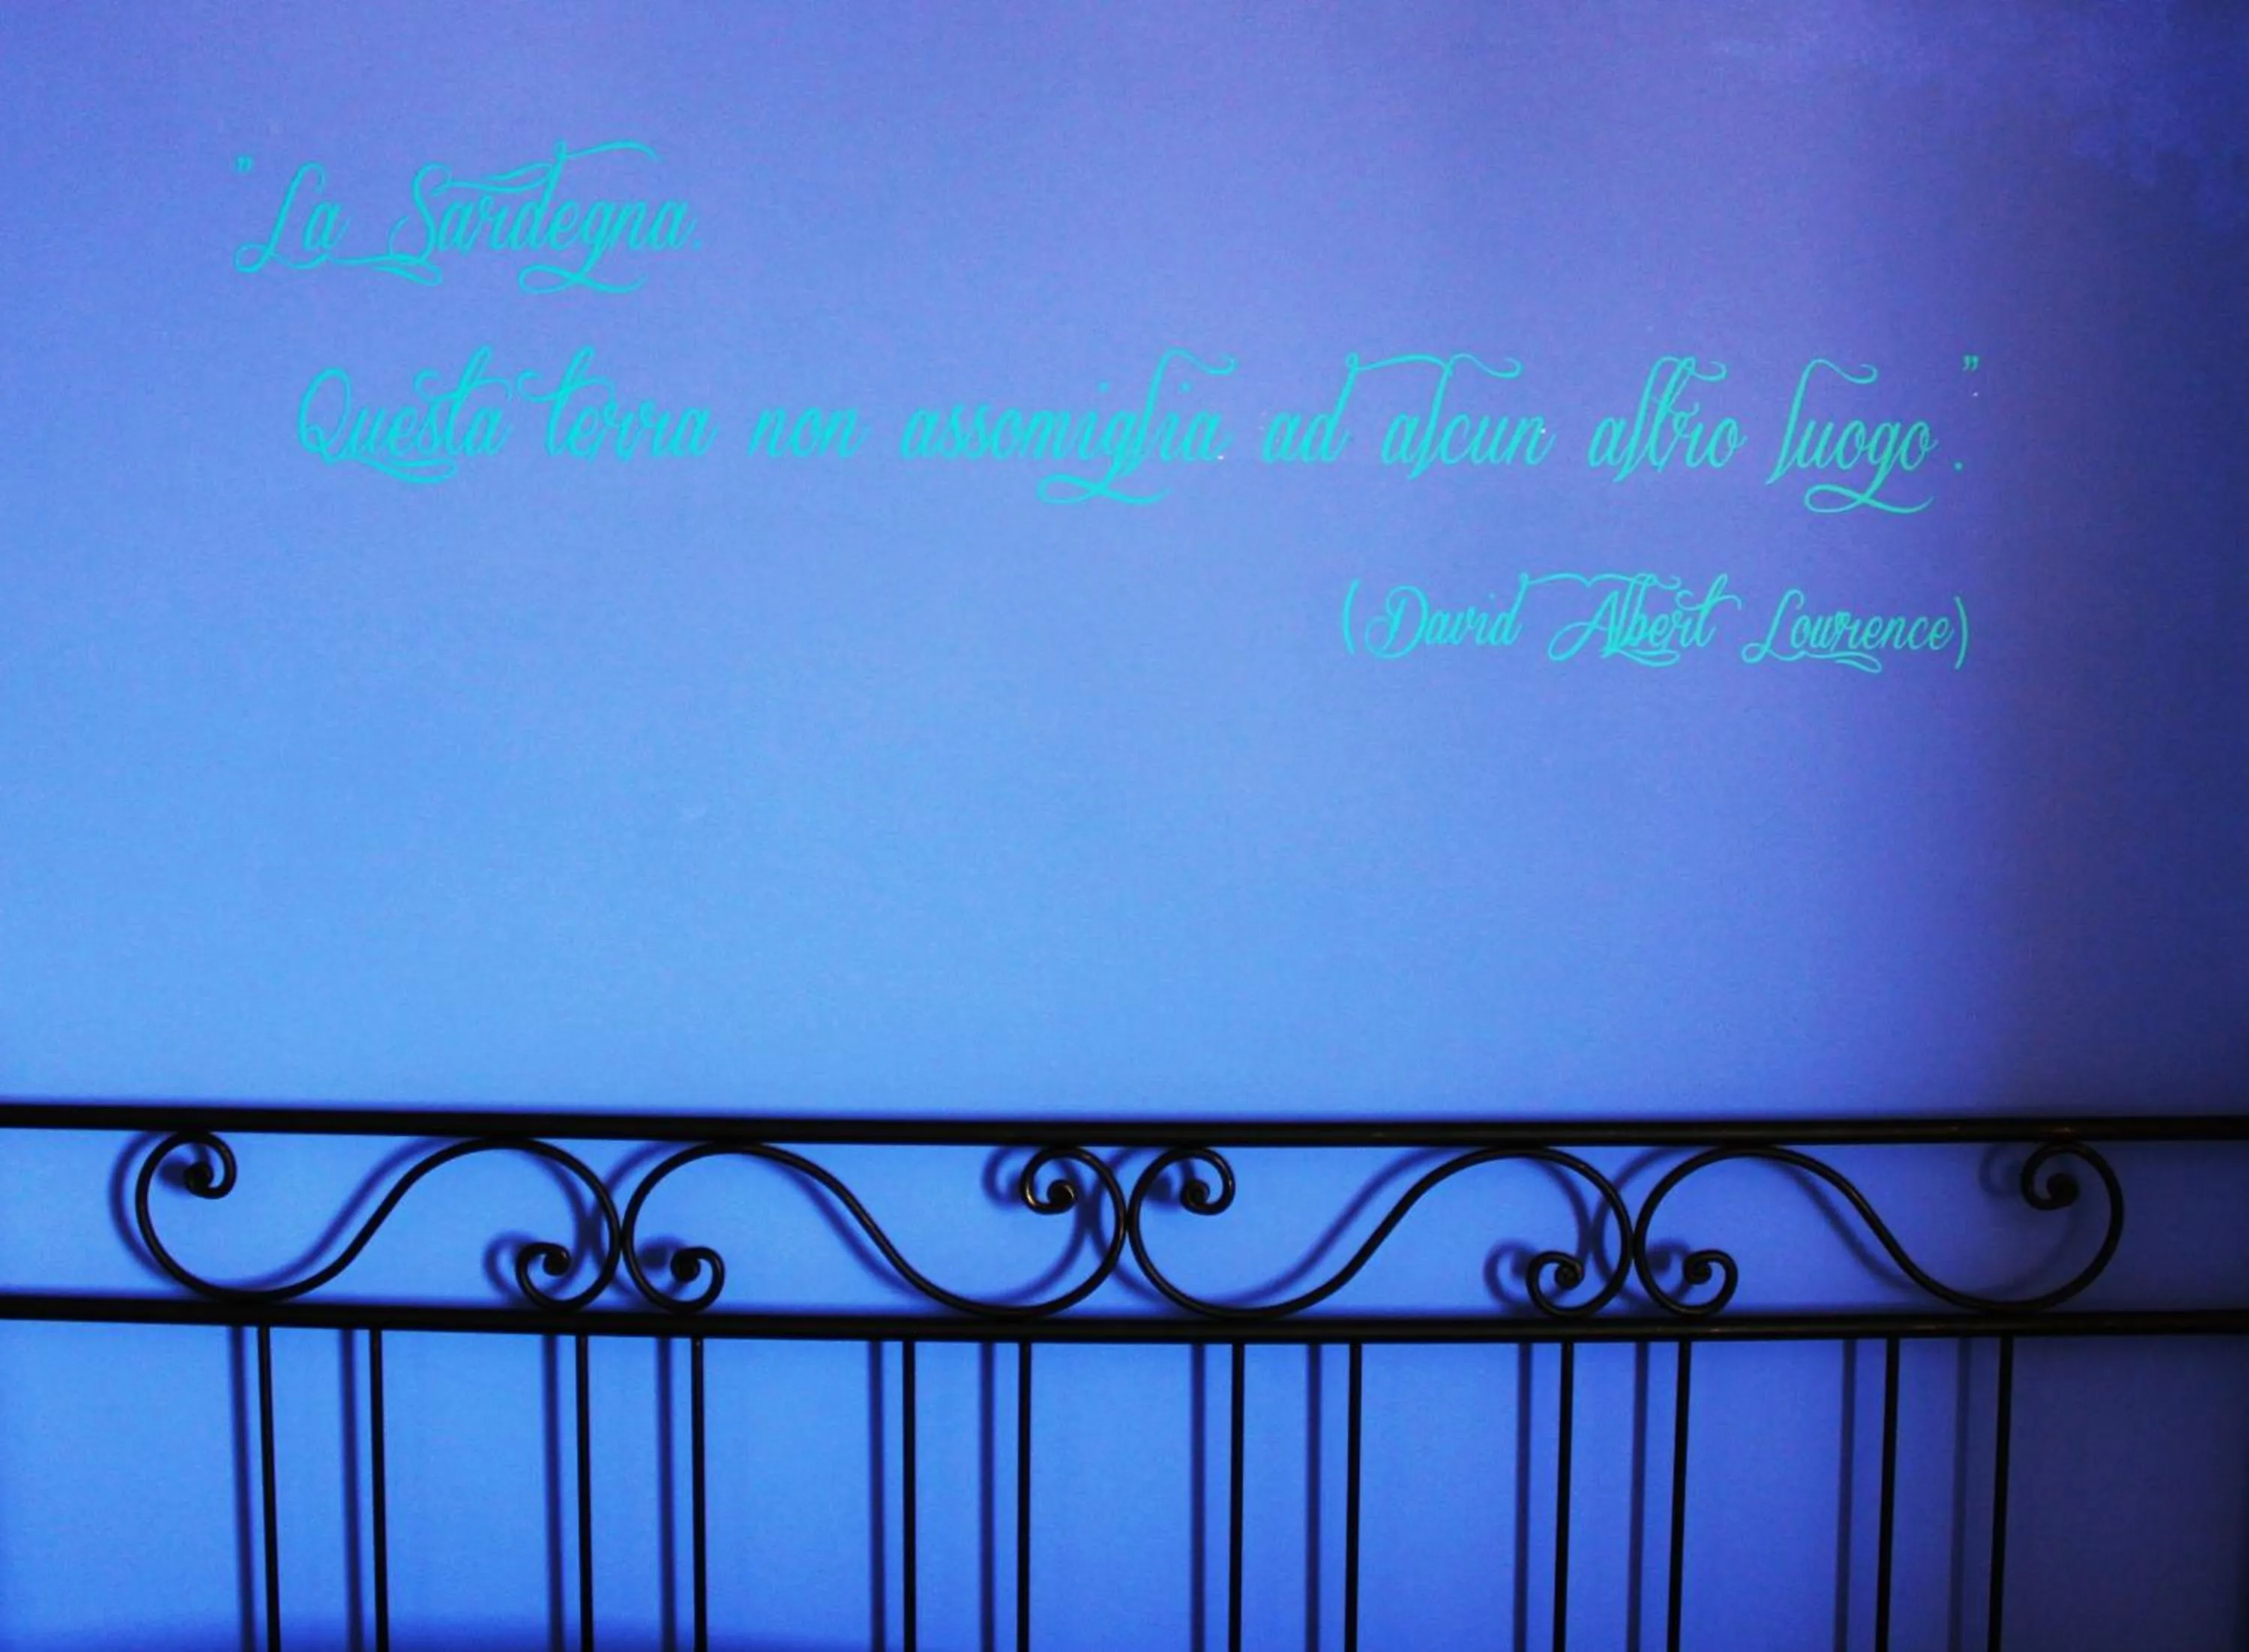 "La Sardegna.
Questa terra non assomiglia ad alcun altro luogo."
(David Albert Lowrence)